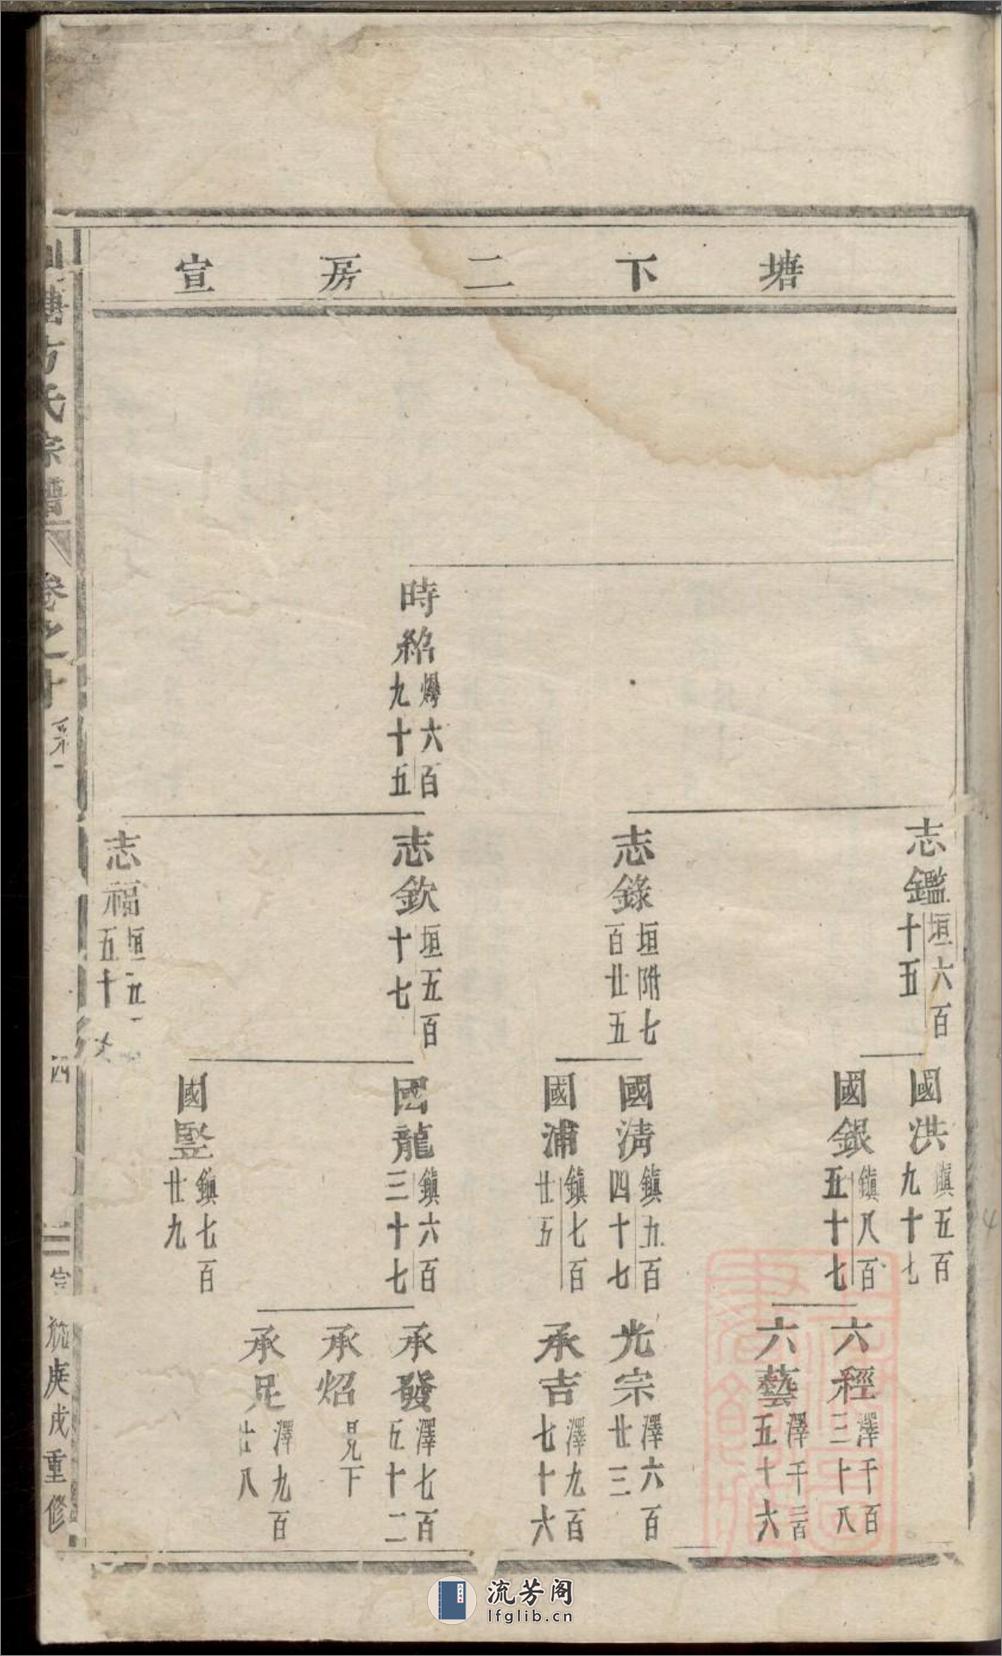 塘下二房宣
時紹 爗六百九十五
志鑑 垣六百十五
志錄 垣附七百廿五
志欽 垣五百十七
志福 垣五 五十
國洪 鎮五百九十七
國銀 鎮八百五十七
國清 鎮五百四十七
國浦 鎮七百廿五
國龍 鎮六百三十七
國豎 鎮七百廿九
六經 澤千百三十八
六藝 澤千二百五十六
光宗 澤六百廿三
承吉 澤九百七十六
承發 澤七百五十二
承炤 見下
承足 澤九百廿八
塘方氏宗譜
卷之十
系一
四
二宣
庚戌重修
流芳阁
lfglib.cn